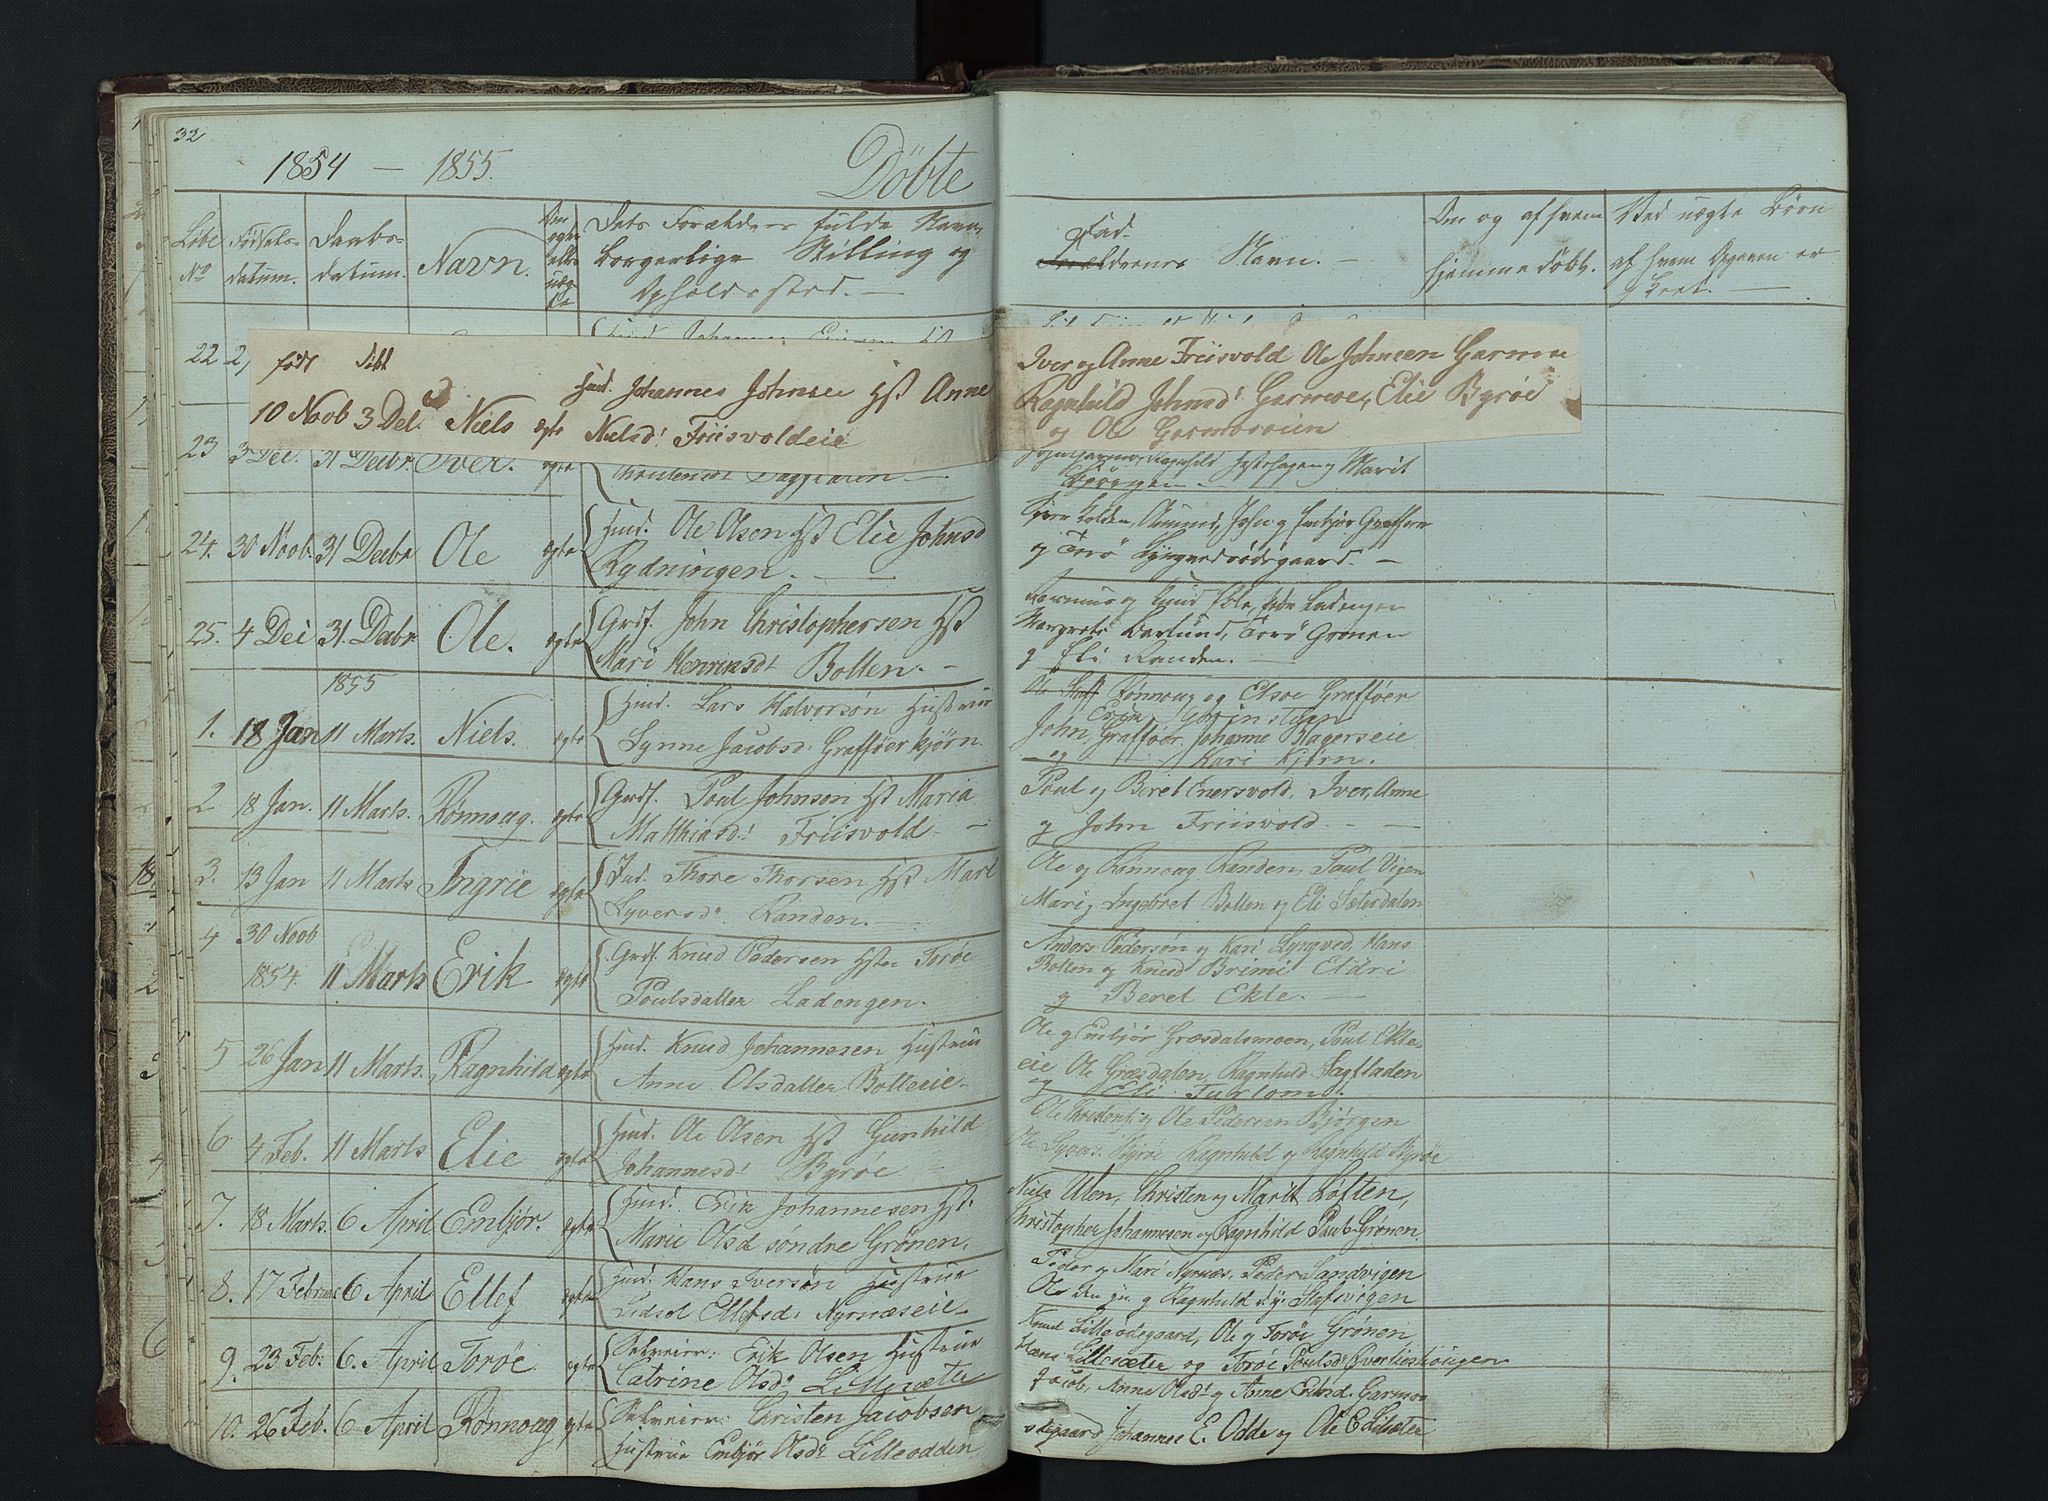 32
1854 — 1855.
Döbte
Löbe No
Födsels-datum.
Daabs-datum.
Navn.
Om egte eller uægte
Dets Forældres fulde Navn,
borgerlige Stilling og
Opholdssted. —
Fad-
Forældrenes Navn. —
Om og af hvem
hjemmedöbt.
Ved uægte Börn
af hvem Opgaven er
gjort. —
22 2,
født Döbt
10 Novb 3 Dec. Niels egte Huusmd. Johannes Johnsen Hst Anne
Nielsd: Friisvoldeie
Iver og Anne Friisvold Ole Johnsen Garmoe
Ragnhild Johnsd: Garmoe, Elie Byrøe
og Ole Garmo
23 3 Dec. 31 Decbr. Iver. egte
Christensdt Dagsladen —
Marit
Bjørgen —
24. 30 Novb. 31 Decbr Ole egte Huusmd. Ole Olsen Hst Elie Johnsd
Rydningen. —
og Torø Lyngvedødegaard. —
25. 4 Dec 31. Decbr Ole. egte Grdf. John Christophersen Hst
Mari Henriksdt Bolten. —
Margrete Torø Grönen
og Eli Randen. —
1855
1. 18 Jan 11 Marts. Niels. egte Huusmd. Lars Halvorsøn Hustrue
Synne Jacobsd. Graffoer kjørn.
Ole Rønnoug og Elsoe Graffoer
Erik
John, Graffoer. Johanne Blagerseie
og Kari Kjørn.
2 18 Jan. 11 Marts. Rønnoug. egte Grdf. Poul Johnson Hst Maria
Matthiasd: Friisvold —
Poul og Beret Enersvold, Iver, Anne
og John Friisvold. —
3. 13 Jan 11 Marts Ingrie egte Ind. Thore Thorsen Hst Mart
Syversd: Randen. —
Ole og Rønnoug Randen, Paul Vigen
Mari og Ingebret Bolten og Eli Seterdalen
4 30 Novb
1854. 11 Marts Erik egte Grdf. Knud Pedersen Hster Torøe
Poulsdatter Ladengen.
Anders Pedersøn og Kari Lyngved, Hans
Bolten og Knud Brimi Eldri
og Beret Ekle. —
5 26 Jan 11 Marts. Ragnhild egte Huusmd. Knud Johannesen Hustrue
Anne Olsdatter Bolteeie. —
Ole og Embjør Græsdalsmoen, Poul Ekle-
eie Ole Græsdalen, Ragnhild Dagsladen
og Eli Furlom.
6 4 Feb. 11 Marts Elie egte Huusmd. Ole Olsen Hst Gunhild
Johannesd: Byrøe
Ole Christens. og Ole Pedersen Bjørgen
Ole Syvers. Byrøe Ragnhild og Ragnhild Byrøe
7. 18 Marts. 6 April Embjør. egte Huusmd. Erik Johannesen Hst.
Marie Olsd söndre Grönen.
Niels Ulen, Christen og Marit Løften,
Christopher Johannesen og Ragnhild Pauls Grönen
8. 17 Februar 6 April Ellef egte Huusmd. Hans Iversøn Hustrue
Lidsel Ellefsd: Nyrnæseie. —
Peder og Mari Nyrnæs, Peder Sandvigen
Ole den yn. og Ragnhild d. y. Stafsvigen
9. 23 Feb: 6. April Torøe egte Selveier: Erik Olsen Hustrue
Catrine Olsd: Lillesæter
Knud Lilleødegaard, Ole og Torøe Grønen
Hans Lillesæter og Torøe Poulsd: Øverlieshougen
10. 26 Feb. 6 April Rønnoug egte Selveier: Christen Jacobsen
Hustrue Embjør Olsd: Lilleodden.
Jacob, Anne Olsd: og Anne Eriksd. Garmos
ødegaard Johannes E. Odde og Ole E Lilsæter